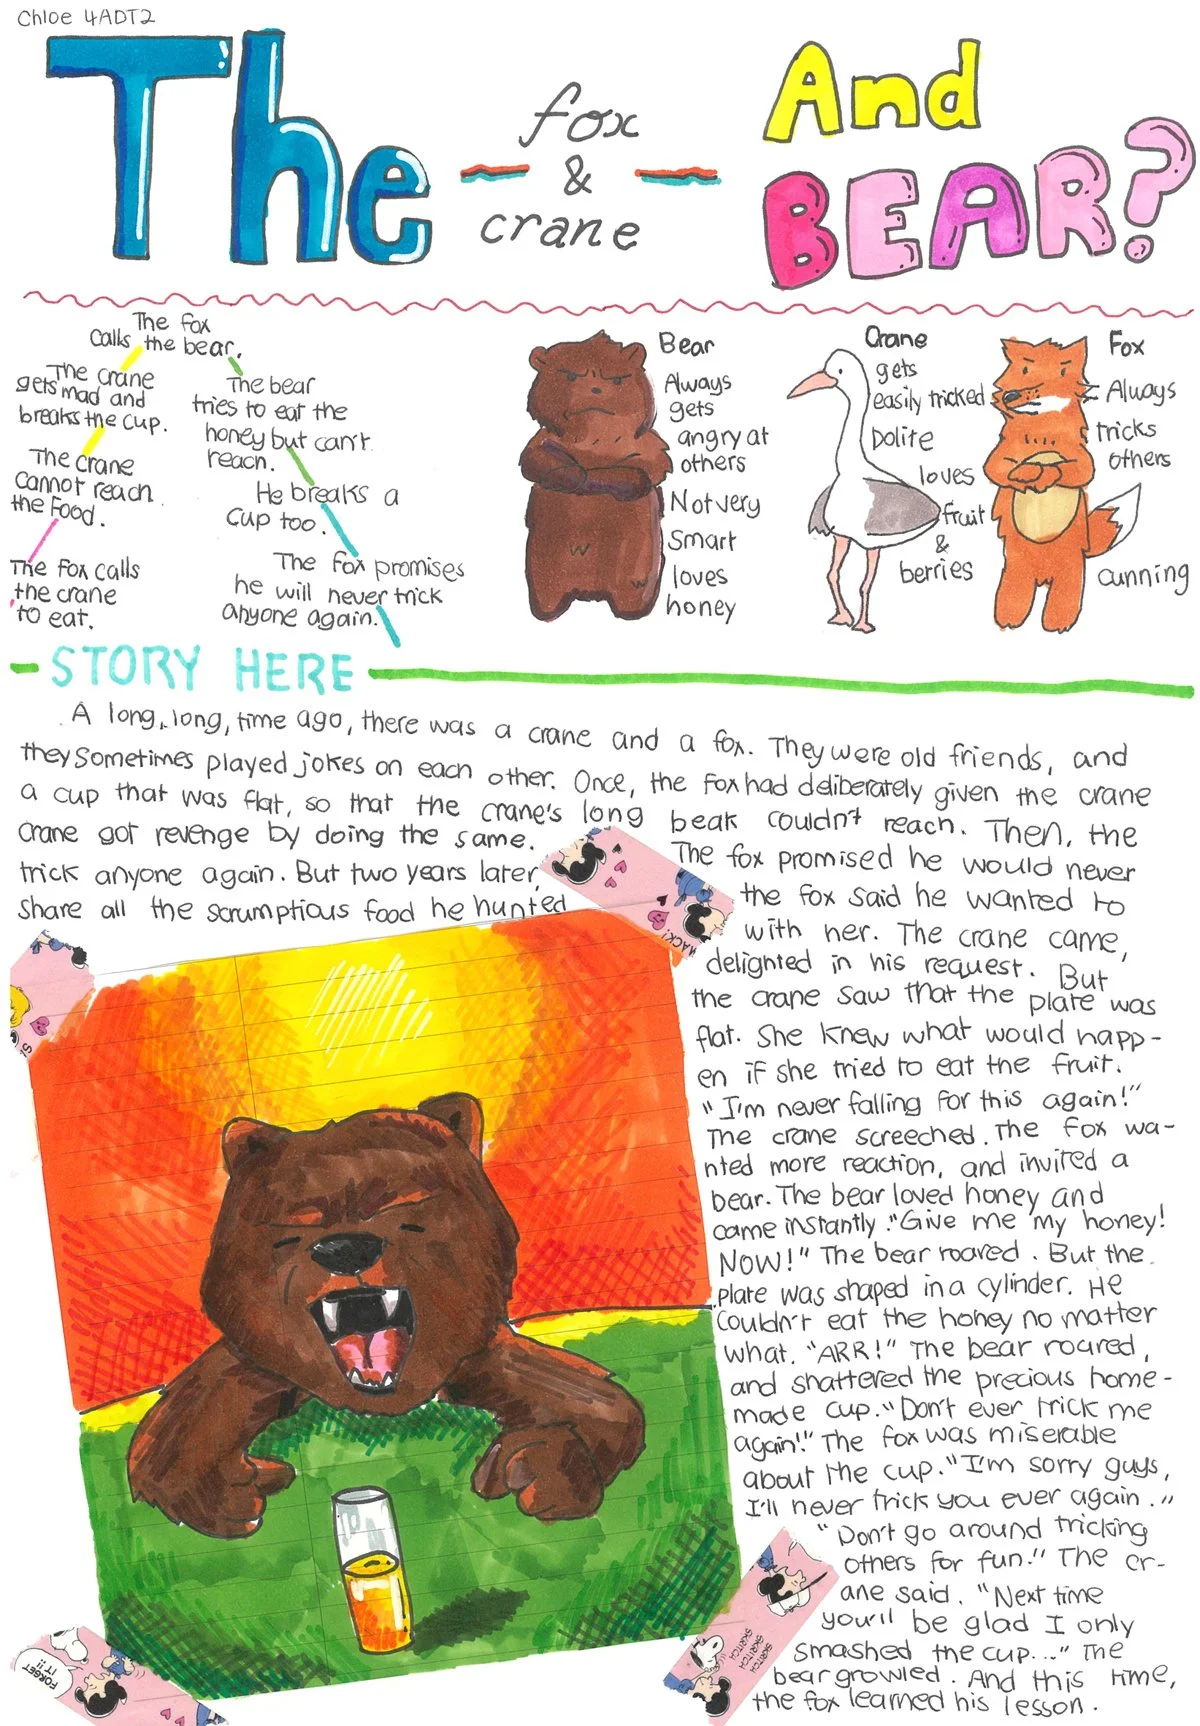 Chloe 4ADT2
The
fox
&
crane
And
BEAR?
The fox
calls the bear.
The crane
gets mad and
breaks the cup.
The crane
cannot reach
the food.
The fox calls
the crane
to eat.
The bear
tries to eat the
honey but can't
reach.
He breaks a
cup too.
The fox promises
he will never trick
anyone again.
Bear
Always
gets
angry at
others
Not very
smart
loves
honey
Crane
gets
easily tricked
polite
loves
fruit
&
berries
Fox
Always
tricks
others
cunning
STORY HERE
A long, long, time ago, there was a crane and a fox. They were old friends, and
they sometimes played jokes on each other. Once, the fox had deliberately given the crane
a cup that was flat, so that the crane's long beak couldn't reach. Then, the
crane got revenge by doing the same. The fox promised he would never
trick anyone again. But two years later, the fox said he wanted to
share all the scrumptious food he hunted with her. The crane came,
delighted in his request. But
the crane saw that the plate was
flat. She knew what would happ-
en if she tried to eat the fruit.
"I'm never falling for this again!"
The crane screeched. The fox wa-
nted more reaction, and invited a
bear. The bear loved honey and
came instantly. "Give me my honey!
NOW!" The bear roared. But the
plate was shaped in a cylinder. He
couldn't eat the honey no matter
what. "ARR!" The bear roared,
and shattered the precious home-
made cup. "Don't ever trick me
again!" The fox was miserable
about the cup. "I'm sorry guys,
I'll never trick you ever again."
"Don't go around tricking
others for fun." The cr-
ane said. "Next time
you'll be glad I only
smashed the cup..." The
bear growled. And this time,
the fox learned his lesson.
HACK!
FORGET
IT!!
SKRITCH
SKRITCH
SKRITCH